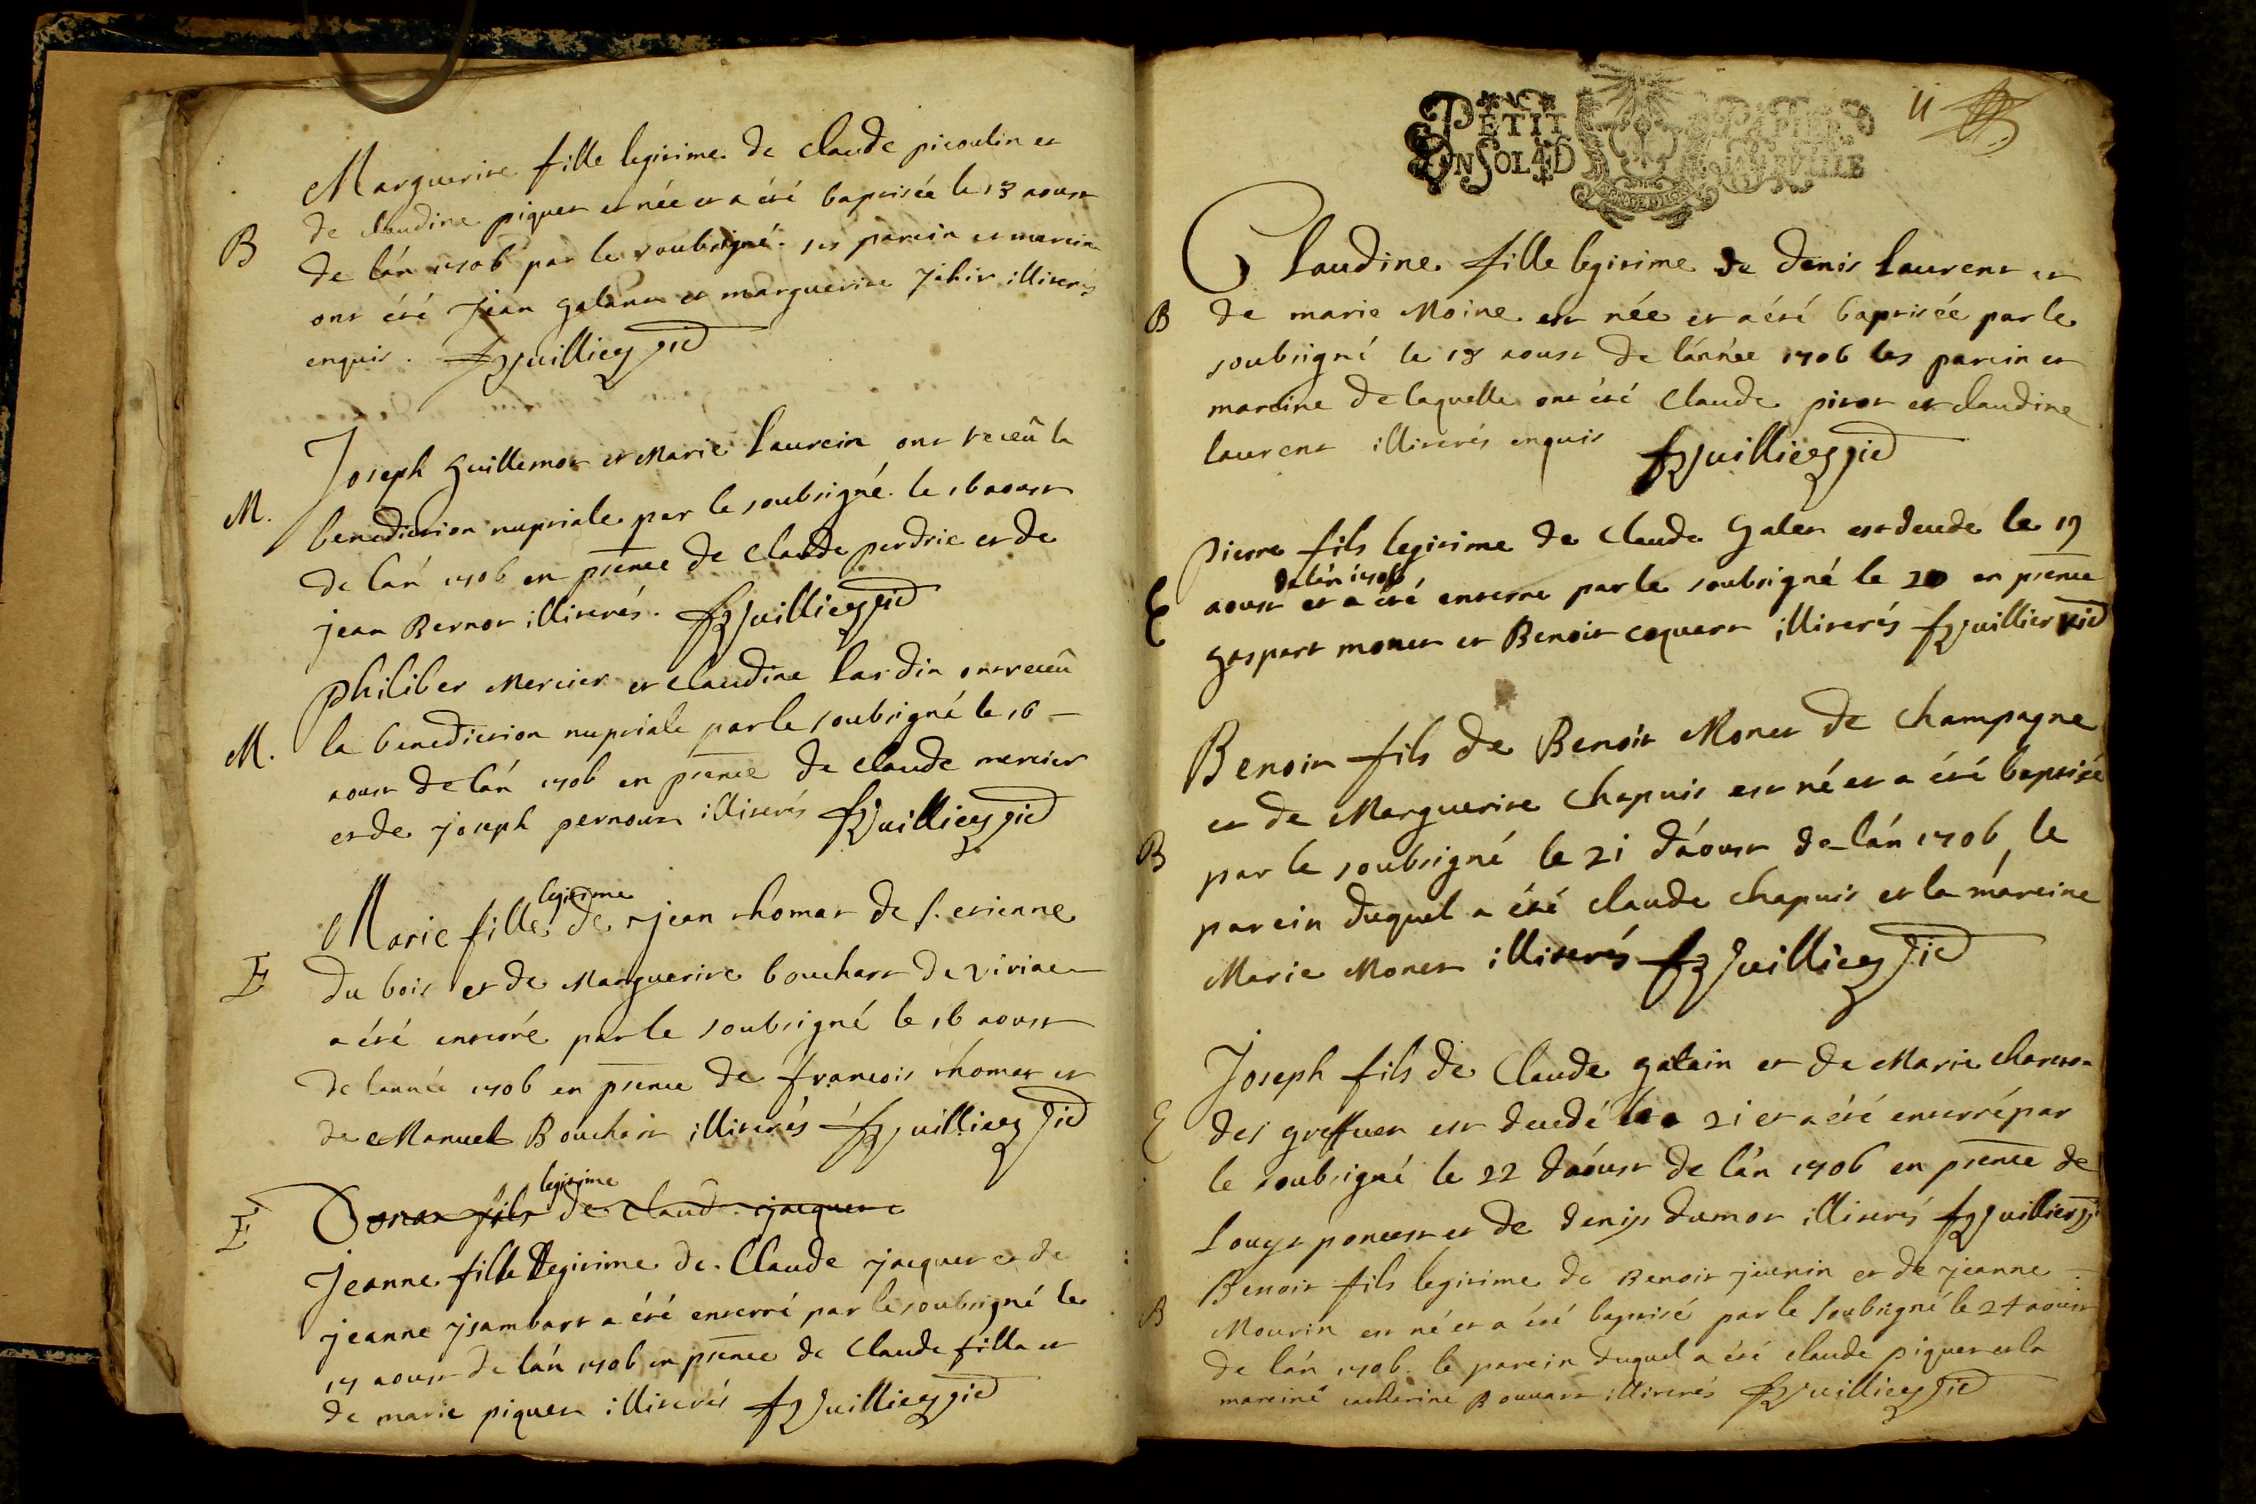 Marguerite fille legitime de claude picoulin et
B
de claudine piquet et née et a été baptisée le 13 aoust
de lán 1706 par le soubsigné. ses parein et mareine
ont été Jean galant et marguerite illiterés
enquis. f Vuillier
Joseph Guillemot et Marie Laurein ont receû la
M.
benediction nuptiale par le soubsigné le 16 aoust
de lán 1706 en pſence de Claude perdric et de
jean Bernot illiterés. f Vuillier
Philiber Mercier et Claudine Lardin ont receû
M.
la benediction nuptiale par le soubsigné le 16
aoust de lán 1706 en pſence de Claude mercier
et de joseph pernoux illiterés f Vuillier
legitime
Marie fille de jean thomas de s. etienne
E
du bois et de Marguerite bouchart de
a été enterré par le soubsigné le 16 aoust
de lannée 1706 en pſence de francois thomas et
de eManuel Bouchart illiterés f Vuillier
legitime
E
fils de claude jacquet
Jeanne fille legitime de Claude jacquet et de
jeanne ysambart a été enterré par le soubsigné le
17 aoust de lán 1706 en pſence de Claude filla et
de marie piquet illiterés f Vuillier
PETIT PAPIER
UN SOL 4 D
11
Claudine fille legitime de denis Laurent et
B
de marie Moine est née et a été baptisée par le
soubsigné le 18 aoust de lánnée 1706 les parein et
mareine de laquelle ont été Claude pirot et claudine
laurent illiterés enquis f Vuillier
pierre fils legitime de Claude Galet est decedé le 19
de lán 1706
E
aoust et a été enterré par le soubsigné le 20 en pſence
gaspart monet et Benoit coquart illiterés f Vuillier
Benoit fils de Benoit Monet de Champagne
et de Marguerite Chapuis est né et a été baptisé
B
par le soubsigné le 21 dáoust de lán 1706 le
parein duquel a été claude chapuis et la máreine
Marie Monet illiterés f Vuillier
Joseph fils de Claude galain et de Marie
E
des est decedé le 21 et a été enterré par
le soubsigné le 22 dáoust de lán 1706 en pſence de
Louys poncet et de denis dumot illiterés f Vuillier
Benoit fils legitime de Benoit juenin et de jeanne
B
Mourin est né et a été baptisé par le soubsigné le 24 aoust
de lán 1706. le parein duquel a été claude piquet et la
mareine catherine Bouvart illiterés f Vuillier